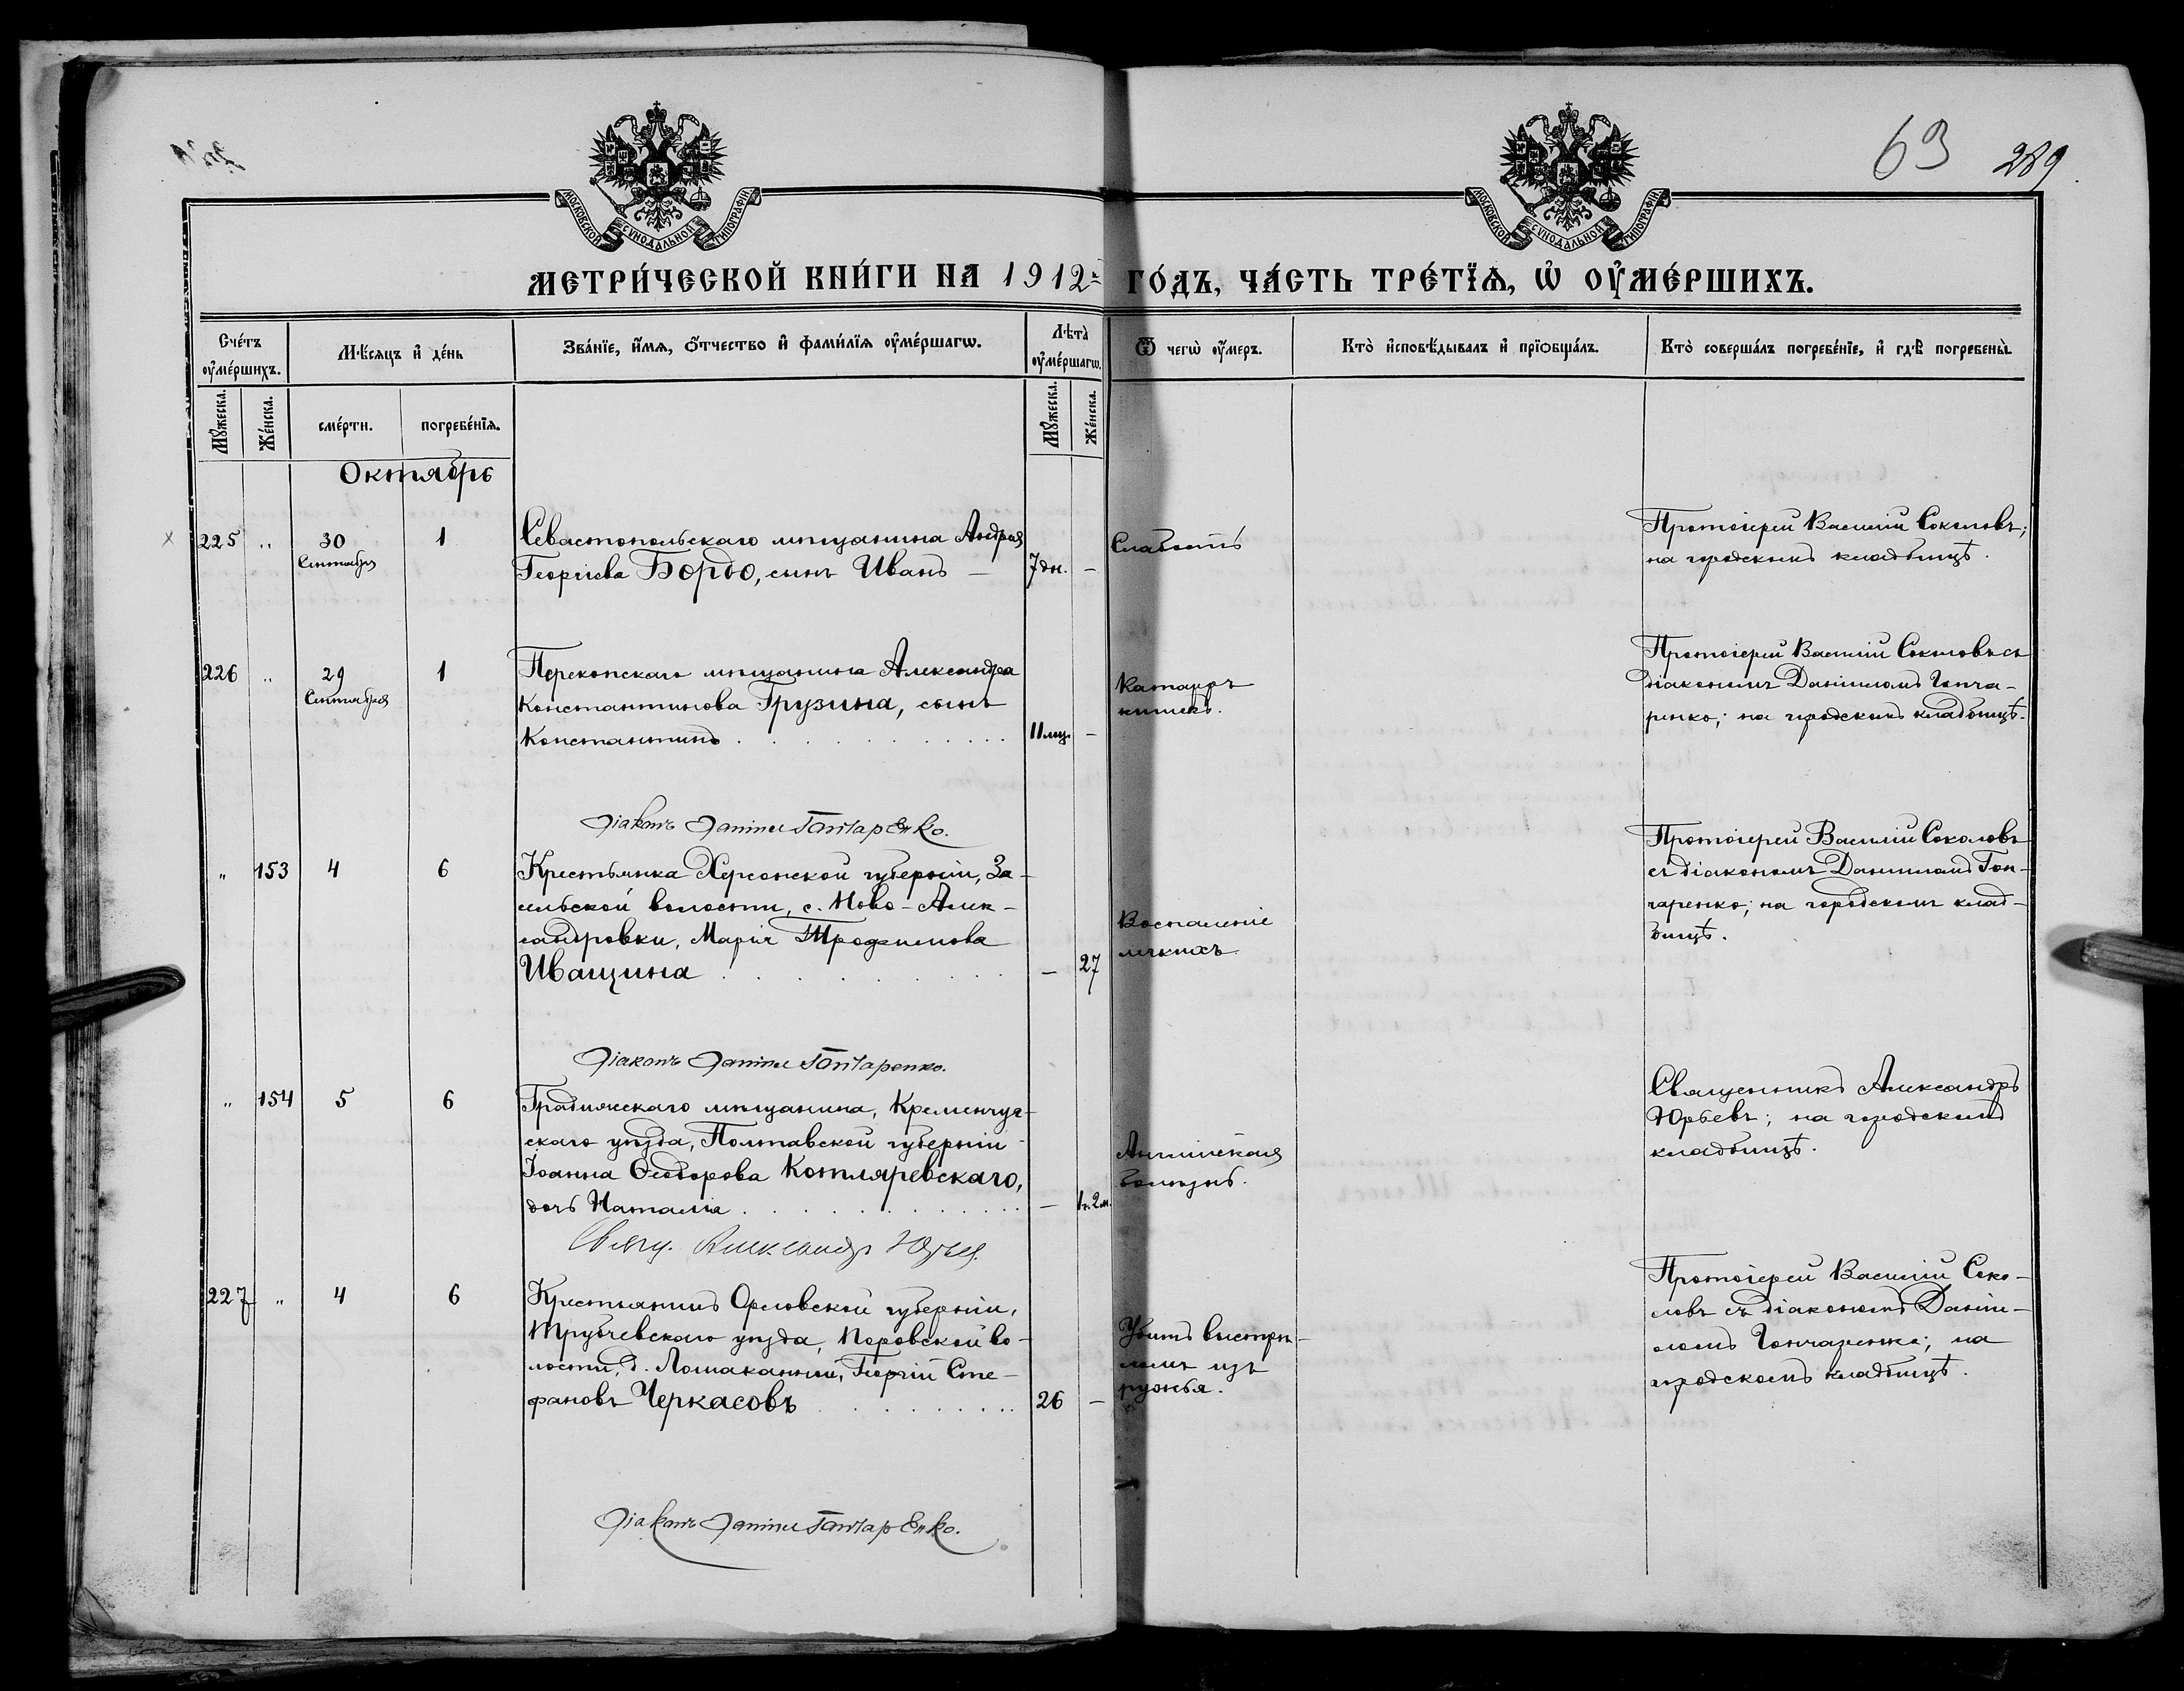 63 289
МОСКОВСКОЙ СѴНОДАЛЬНОЙ ТИПОГРАФІИ
МОСКОВСКОЙ СѴНОДАЛЬНОЙ ТИПОГРАФІИ
МЕТРИ́ЧЕСКОЙ КНИ́ГИ НА 1912 ГО́ДЪ, ЧА́СТЬ ТРЕ́ТЇѦ, Ѡ҆ ОУ҆МЕ́РШИХЪ.
Сче́тъ оу҆ме́ршихъ.
Мѣ́сѧцъ и҆ де́нь
Зва́нїе, и҆́мѧ, ѻ҆́тчество и҆ фами́лїѧ оу҆ме́ршагѡ.
Лѣ́та оу҆ме́ршагѡ.
Ѿ чегѡ̀ оу҆́меръ.
Кто̀ и҆сповѣ́дывалъ и҆ прїѻбща́лъ.
Кто̀ соверша́лъ погребе́нїе, и҆ гдѣ̀ погребены̀.
Мꙋ́жеска. Же́нска. сме́рти. погребе́нїѧ. Мꙋ́жеска. Же́нска.
Октябрь
225 „ 30 Сентября 1
Севастопольскаго мѣщанина Андрея
Георгіева Бордо, сынъ Иванъ – 7 дн. –
Слабость
Протоіерей Василій Соколовъ;
на городскомъ кладбищѣ.
226 „ 29 Сентября 1
Перекопскаго мѣщанина Александра
Константинова Грузина, сынъ
Константинъ . . . . 11 мц. –
Катарръ
кишекъ.
Протоіерей Василій Соколовъ съ
діакономъ Даніиломъ Гонча-
ренко; на городскомъ кладбищѣ.
Діаконъ Даніилъ Гончаренко.
„ 153 4 6
Крестьянка Херсонской губерніи, За-
сельской волости, с. Ново-Алек-
сандровки, Марія Трофимова
Иващина . . . . – 27
Воспаленіе
легкихъ
Протоіерей Василій Соколовъ
съ діакономъ Даніиломъ Гон-
чаренко; на городскомъ клад-
бищѣ.
Діаконъ Даніилъ Гончаренко.
„ 154 5 6
Градижскаго мѣщанина, Кременчуг-
скаго уѣзда, Полтавской губерніи
Іоанна Ѳеодорова Котляревскаго,
дочь Наталія . . . . – 1 г. 2 м.
Англійская
болѣзнь.
Священникъ Александръ
Юрьевъ; на городскомъ
кладбищѣ.
Свящ. Александръ Юрьев.
227 „ 4 6
Крестьянинъ Орловской губерніи,
Трубчевскаго уѣзда, во-
лости, д. Георгій Сте-
фановъ Черкасовъ . . . . 26 –
Убитъ выстрѣ-
ломъ изъ
ружья.
Протоіерей Василій Соко-
ловъ съ діакономъ Даніи-
ломъ Гончаренко; на
городскомъ кладбищѣ.
Діаконъ Даніилъ Гончаренко.